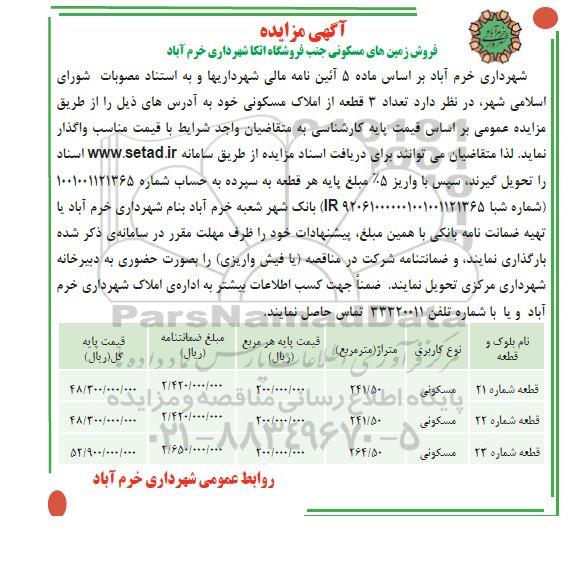 آگهی مزایده
فروش زمین های مسکونی جنب فروشگاه اتکا شهرداری خرم آباد
شهرداری خرم آباد بر اساس ماده ۵ آئین نامه مالی شهرداریها و به استناد مصوبات شورای
اسلامی شهر، در نظر دارد تعداد ۳ قطعه از املاک مسکونی خود به آدرس های ذیل را از طریق
مزایده عمومی بر اساس قیمت پایه کارشناسی به متقاضیان واجد شرایط با قیمت مناسب واگذار
نماید. لذا متقاضیان می توانند برای دریافت اسناد مزایده از طریق سامانه www.setad.ir اسناد
را تحویل گیرند، سپس با واریز ۵٪ مبلغ پایه هر قطعه به سپرده به حساب شماره ۱۰۰۱۰۰۱۱۲۱۳۶۵
(شماره شبا IR ۹۲۰۶۱۰۰۰۰۰۰۱۰۰۱۰۰۱۱۲۱۳۶۵) بانک شهر شعبه خرم آباد بنام شهرداری خرم آباد یا
تهیه ضمانت نامه بانکی با همین مبلغ، پیشنهادات خود را ظرف مهلت مقرر در سامانه‌ی ذکر شده
بارگذاری نمایند، و ضمانتنامه شرکت در مناقصه (یا فیش واریزی) را بصورت حضوری به دبیرخانه
شهرداری مرکزی تحویل نمایند. ضمناً جهت کسب اطلاعات بیشتر به اداره‌ی املاک شهرداری خرم
آباد و یا با شماره تلفن ۳۳۳۲۰۰۱۱ تماس حاصل نمایند.
ParsNamadData
نام بلوک و قطعه نوع کاربری متراژ(مترمربع) قیمت پایه هر مربع (ریال) مبلغ ضمانتنامه (ریال) قیمت پایه کل(ریال)
قطعه شماره ۲۱ مسکونی ۲۴۱/۵۰ ۲۰۰/۰۰۰/۰۰۰ ۲/۴۲۰/۰۰۰/۰۰۰ ۴۸/۳۰۰/۰۰۰/۰۰۰
قطعه شماره ۲۲ مسکونی ۲۴۱/۵۰ ۲۰۰/۰۰۰/۰۰۰ ۲/۴۲۰/۰۰۰/۰۰۰ ۴۸/۳۰۰/۰۰۰/۰۰۰
قطعه شماره ۲۳ مسکونی ۲۶۴/۵۰ ۲۰۰/۰۰۰/۰۰۰ ۲/۶۵۰/۰۰۰/۰۰۰ ۵۲/۹۰۰/۰۰۰/۰۰۰
پایگاه اطلاع رسانی مناقصه و مزایده
۰۲۱-۸۸۳۴۹۶۷۰-۵
روابط عمومی شهرداری خرم آباد